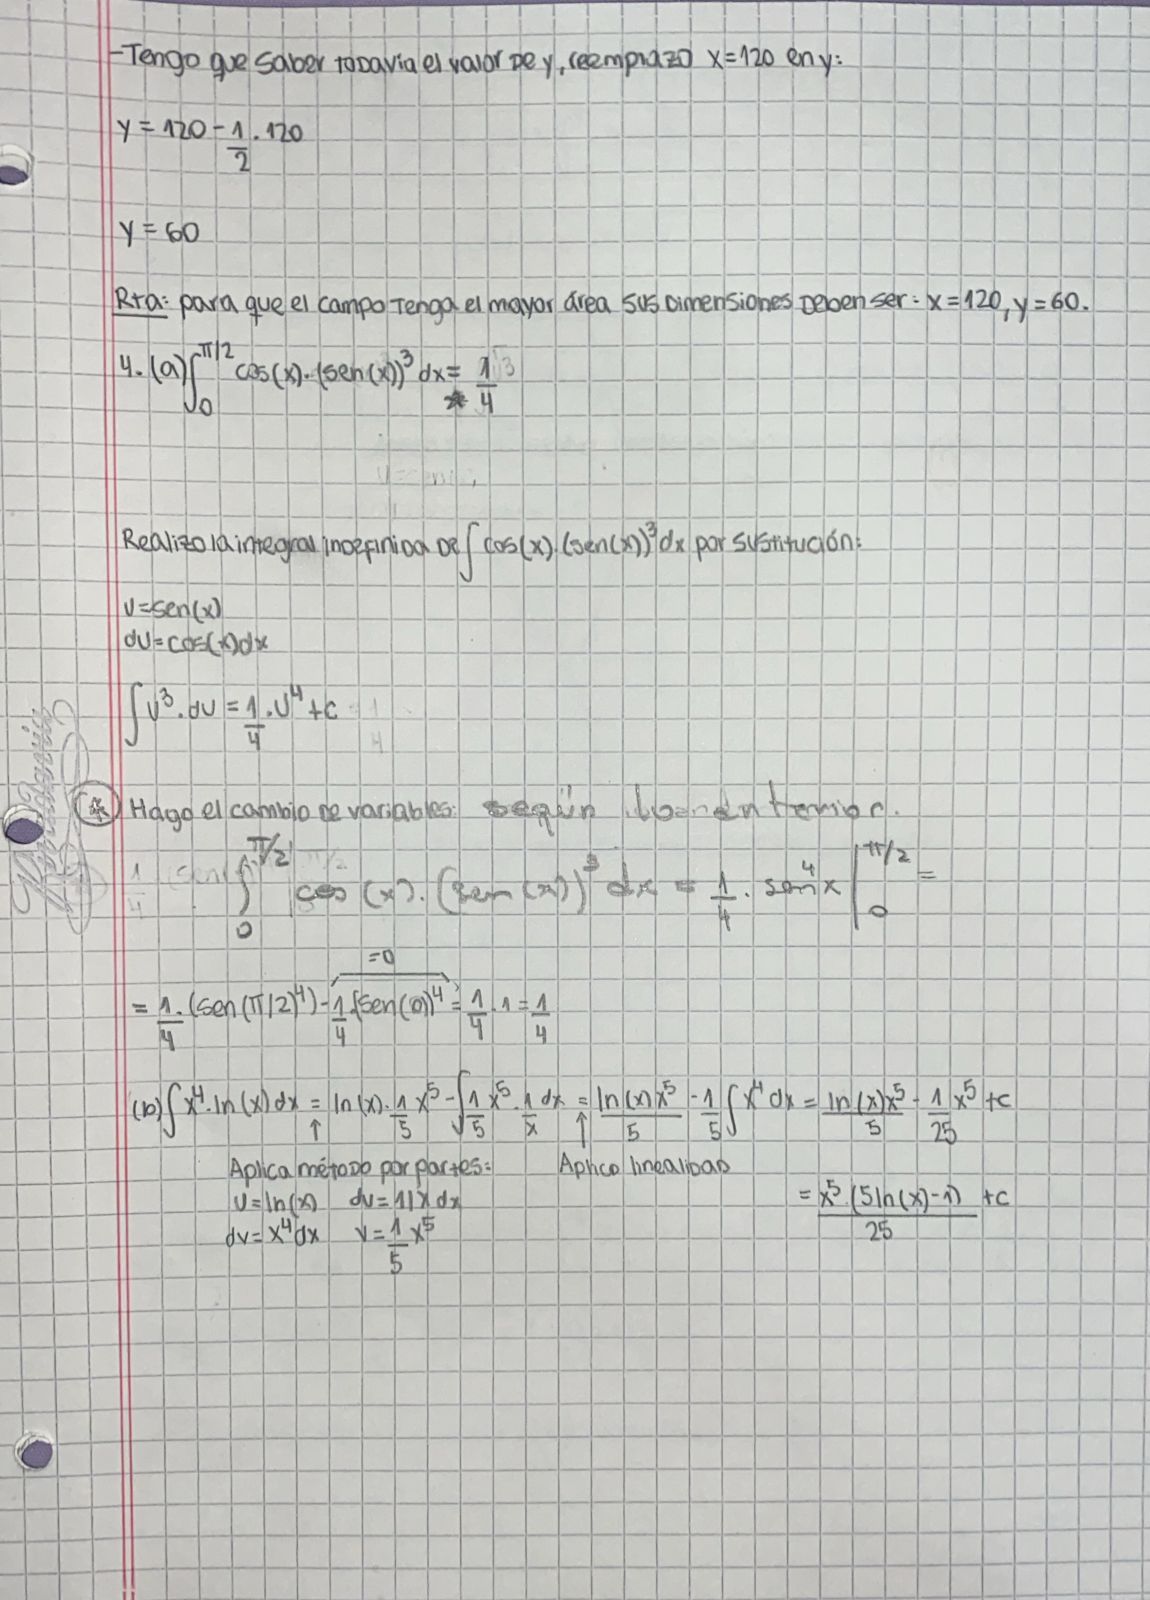 -Tengo que saber todavía el valor de y, reemplazo x=120 en y:
y = 120 - 1/2 · 120
y = 60
Rta: para que el campo tenga el mayor área sus dimensiones deben ser: x=120, y=60.
4. (a) ∫₀^π/2 cos(x)·(sen(x))³ dx = 1/4
Realizo la integral indefinida de ∫ cos(x)·(sen(x))³ dx por sustitución:
u=sen(x)
du=cos(x)dx
∫ u³·du = 1/4 · u⁴ + c
* Hago el cambio de variables: según lo anterior.
∫₀^π/2 cos(x)·(sen(x))³ dx = 1/4 · sen⁴x |₀^π/2 =
=0
= 1/4·(sen(π/2)⁴) - 1/4·(sen(0))⁴ = 1/4 · 1 = 1/4
(b) ∫ x⁴·ln(x) dx = ln(x)·1/5 x⁵ - ∫ 1/5 x⁵ · 1/x dx = ln(x)x⁵/5 - 1/5 ∫ x⁴ dx = ln(x)x⁵/5 - 1/25 x⁵ + c
↑ ↑
Aplica método por partes: Aplico linealidad
u=ln(x) du=1/x dx = x⁵·(5ln(x)-1)/25 + c
dv=x⁴dx v=1/5 x⁵